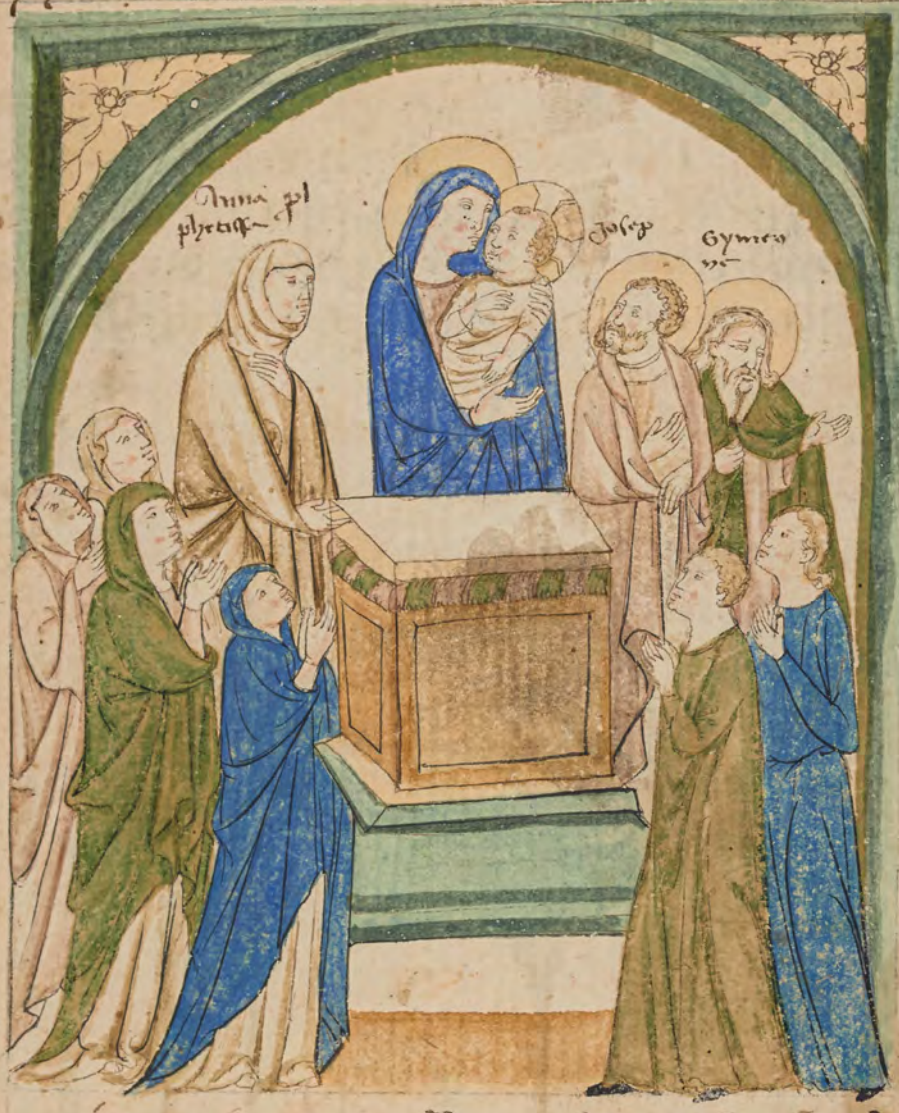 Anna p[ro]
phetissa
Josep
Symeo
ne